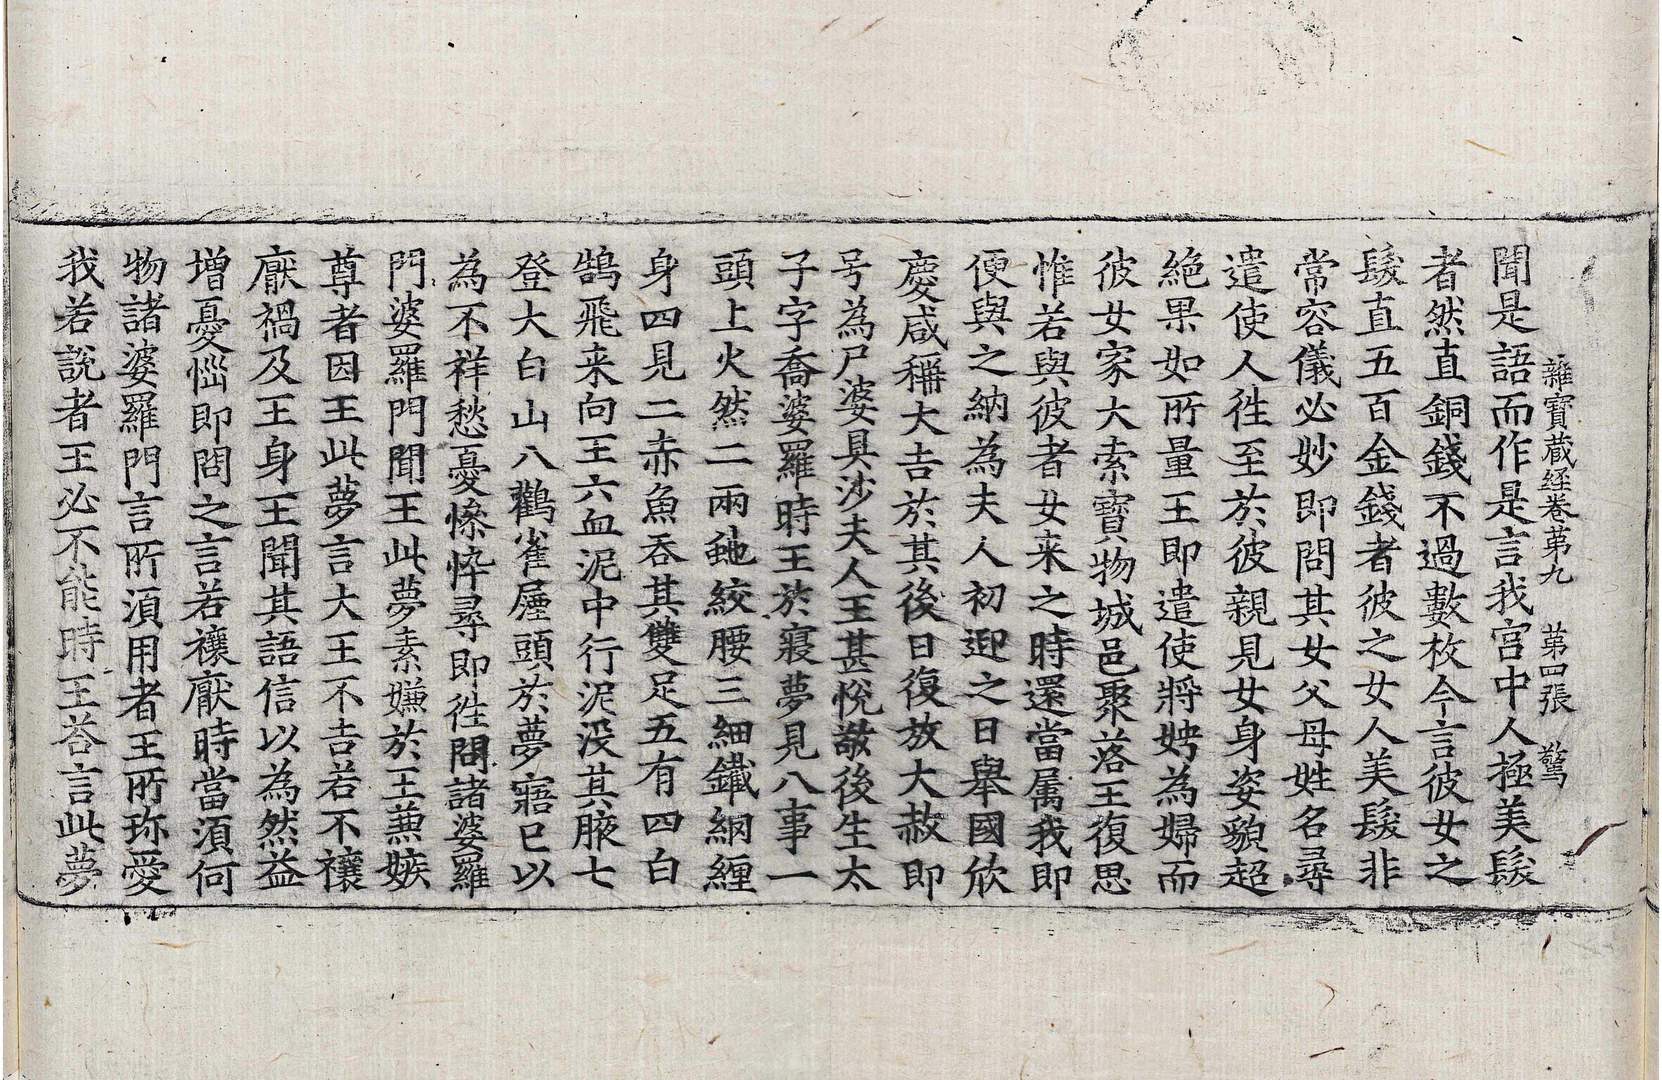 雜寶蔵経卷第九　第四張　驚
聞是語而作是言我宫中人極美髮
者然直銅錢不過數枚今言彼女之
髮直五百金錢者彼之女人美髮非
常容儀必妙即問其女父母姓名尋
遣使人徃至於彼親見女身姿貌超
絶果如所量王即遣使將娉為婦而
彼女家大索寶物城邑聚落王復思
惟若與彼者女来之時還當属我即
便與之納為夫人初迎之日舉國欣
慶咸稱大吉於其後日復放大赦即
号為尸婆具沙夫人王甚悅敬後生太
子字喬婆羅時王於寢夢見八事一
頭上火然二兩虵絞腰三細鐵網纒
身四見二赤魚吞其雙足五有四白
鵠飛来向王六血泥中行泥没其腋七
登大白山八鸛雀屙頭於夢寤已以
為不祥愁憂慘悴尋即徃問諸婆羅
門婆羅門聞王此夢素嫌於王兼嫉
尊者因王此夢言大王不吉若不禳
厭禍及王身王聞其語信以為然益
增憂惱即問之言若禳厭時當湏何
物諸婆羅門言所湏用者王所珎愛
我若説者王必不能時王荅言此夢